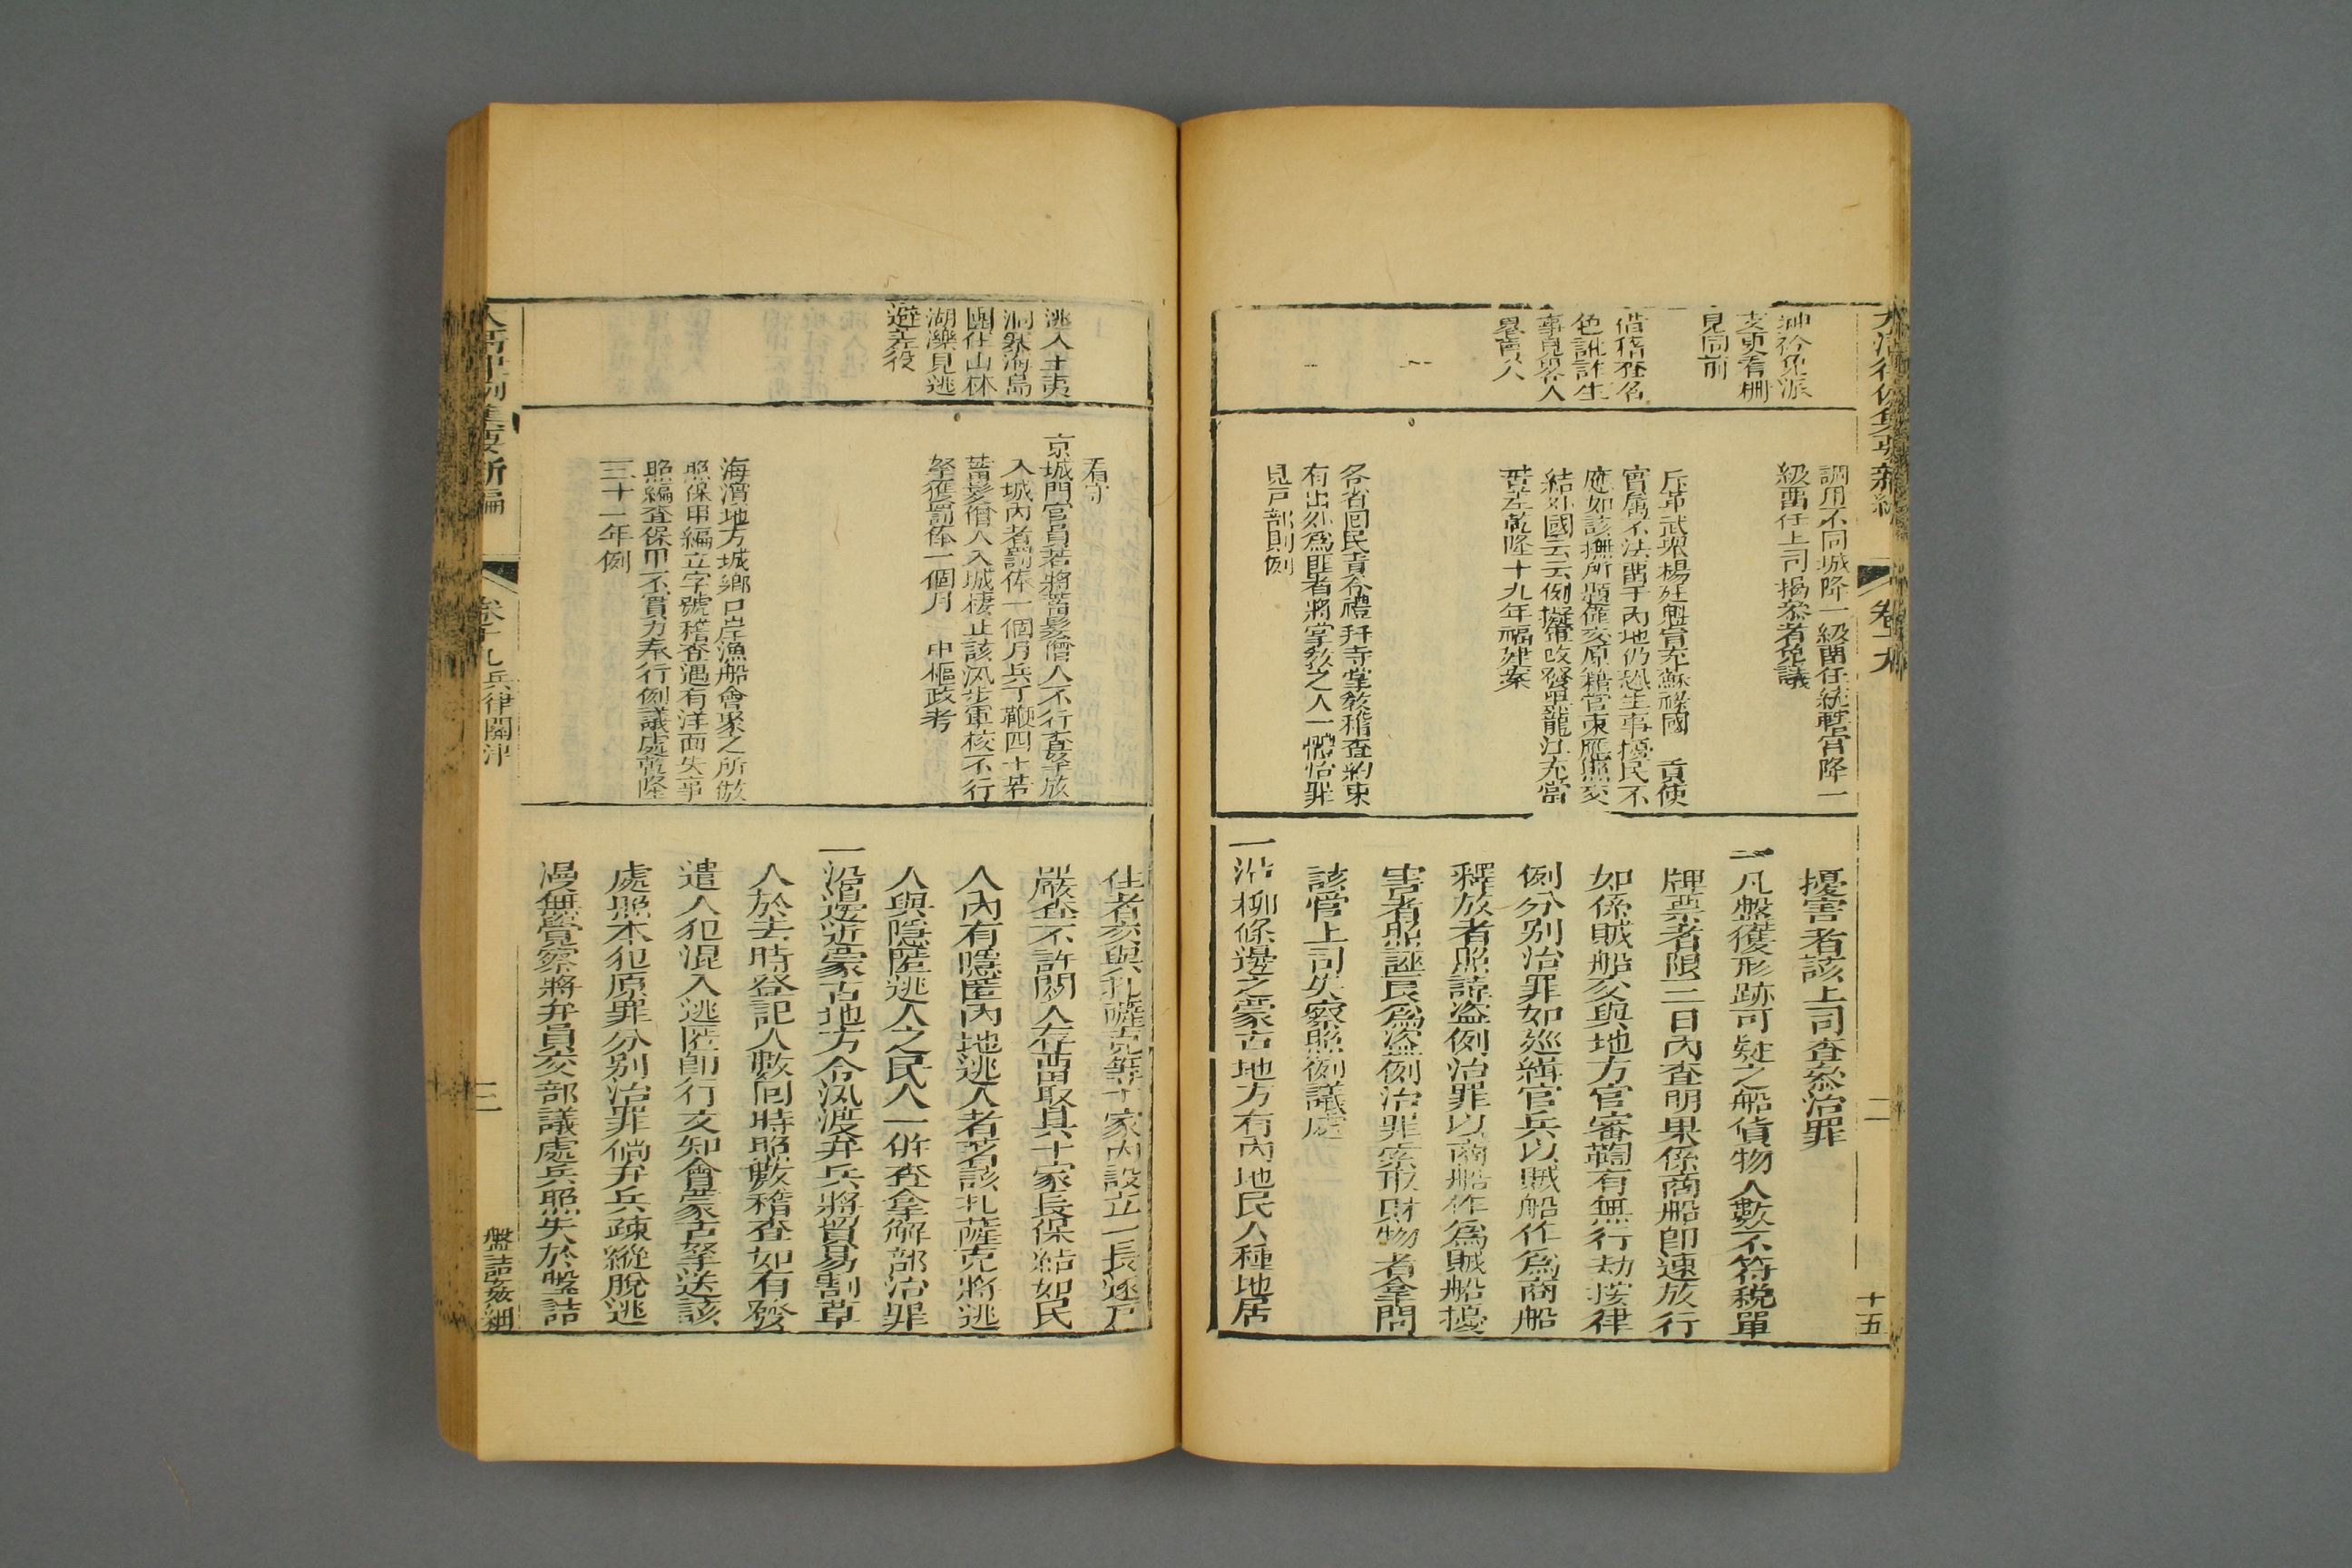 大清律例集要新編
卷十九
二
十五
紳衿免派
支更看柵
見同前
借稽查名
色訛詐生
事見畧人
畧賣人
調用不同城降一級畱任統轄官降一
級畱任上司揭叅者免議
斥革武舉楊廷魁冒充蘇祿國 貢使
實屬不法畱于內地仍恐生事擾民不
應如該撫所題僅交原籍官束應照交
結外國云云例擬軍改發黑龍江充當
苦差乾隆十九年福建案
各省回民責令禮拜寺掌教稽查約束
有出外爲匪者將掌教之人一體治罪
見戸部則例
擾害者該上司查叅治罪
一凡盤獲形跡可疑之船貨物人數不符稅單
牌票者限三日內查明果係商船卽速放行
如係賊船交與地方官審鞫有無行劫按律
例分別治罪如廵緝官兵以賊船作爲商船
釋放者照諱盜例治罪以商船作爲賊船擾
害者照誣良爲盜例治罪索取財物者拿問
該管上司失察照例議處
一沿柳條邊之蒙古地方有內地民人種地居
逃入土夷
洞寨海島
團住山林
湖濼見逃
避差役
看守
京城門官員若將蓄髮僧人不行查拏放
入城內者罰俸一個月兵丁鞭四十若
蓄髮僧人入城棲止該汛步軍校不行
拏獲罰俸一個月 中樞政考
海濱地方城鄉口岸漁船會聚之所倣
照保甲編立字號稽查遇有洋面失事
照編查保甲不實力奉行例議處乾隆
三十一年例
住者交與扎薩克等十家內設立一長逐戸
嚴查不許閒人存畱取具十家長保結如民
人內有隱匿內地逃人者著該扎薩克將逃
人與隱匿逃人之民人一併查拿解部治罪
一沿邊近蒙古地方令汛渡弁兵將貿易割草
人於去時登記人數回時照數稽查如有發
遣人犯混入逃匿卽行交知會蒙古拏送該
處照本犯原罪分別治罪倘弁兵疎縱脫逃
漫無覺察將弁員交部議處兵照失於盤詰
大清律例集要新編
卷十九兵律關津
三
盤詰姦細